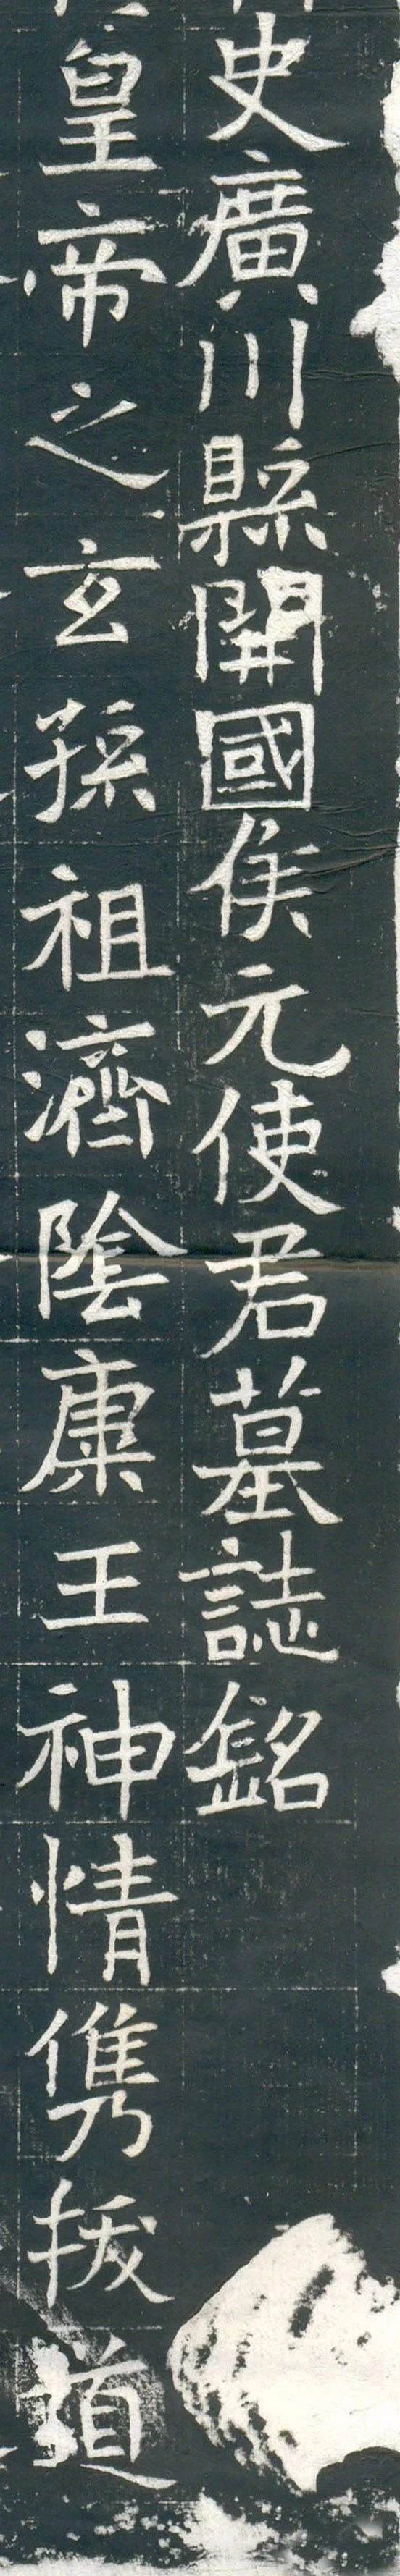 史廣川縣開國侯元使君墓誌銘
皇帝之玄孫祖濟陰康王神情儁拔道